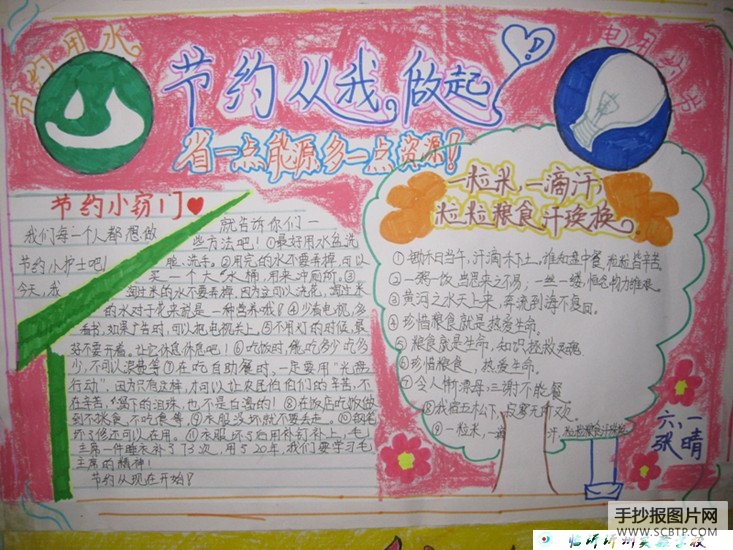 节约用水
节约从我做起
省一点能源多一点资源!
节约小窍门
我们每一个人都想做
节约小护士吧!
今天,我
就告诉你们一
些方法吧!①最好用水盆洗
脸、洗手。②用完的水不要丢掉,可以
买一个大“水桶”,用来冲厕所。③
淘过米的水不要丢掉,因为它可以浇花,淘过米
的水对于花来说是一种营养哦?④少看电视,多
看书,如果广告时,可以把电视关上,⑤不用灯的时候,最
好不要开着。让它休息休息吧!⑥吃饭时,能吃多少吃多
少,不可以浪费等⑦在吃自助餐时,一定要用“光盘
行动”,因为只有这样,才可以让农民伯伯们的辛苦,不
在辛苦,“留下的泪珠,也不是白流的!⑧在饭店吃饭做
到不挑食,不吃食等⑨衣服当坏就不要丢走。⑩钢笔
坏了修还可以在用。⑪衣服坏了后用补钉补上,毛
主席一件睡衣补了73次,用520年,我们要学习毛
主席的精神!
节约从现在开始?
一粒米,一滴汗,
粒粒粮食汗珠换。
①锄禾日当午,汗滴禾下土,谁知盘中餐,粒粒皆辛苦。
②一粥一饭,当思来之不易;一丝一缕,恒念物力维艰。
③黄河之水天上来,奔流到海不复回。
④珍惜粮食就是热爱生命。
⑤粮食就是生命,知识拯救灵魂
⑥珍惜粮食,热爱生命。
⑦令人惭漂母,三谢不能餐
⑧我宿五松下,寂寥无所欢。
⑨一粒米,一滴汗,粒粒粮食汗珠换。
六、一
张晴
手抄报图片网
WWW.SCBTP.COM
临沂沂州实验学校